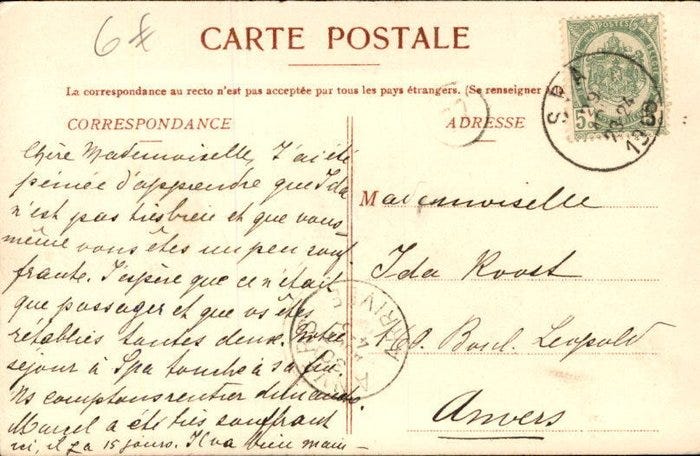 6 €
CARTE POSTALE
POSTES
5 5
SPA
1908
La correspondance au recto n'est pas acceptée par tous les pays étrangers. (Se renseigner
CORRESPONDANCE
ADRESSE
Chère Mademoiselle, J'ai été
peinée d'apprendre que Ida
n'est pas très bien et que vous-
même vous êtes un peu souf
frante. J'espère que ce n'était
que passager et que vs êtes
rétablies toutes deux. Notre
séjour à Spa touche à sa fin.
Ns comptons rentrer dimanche.
Marcel a été très souffrant
ici, il y a 15 jours. Il va bien main-
Mademoiselle
Ida Roost
69. Boul. Leopold
Anvers